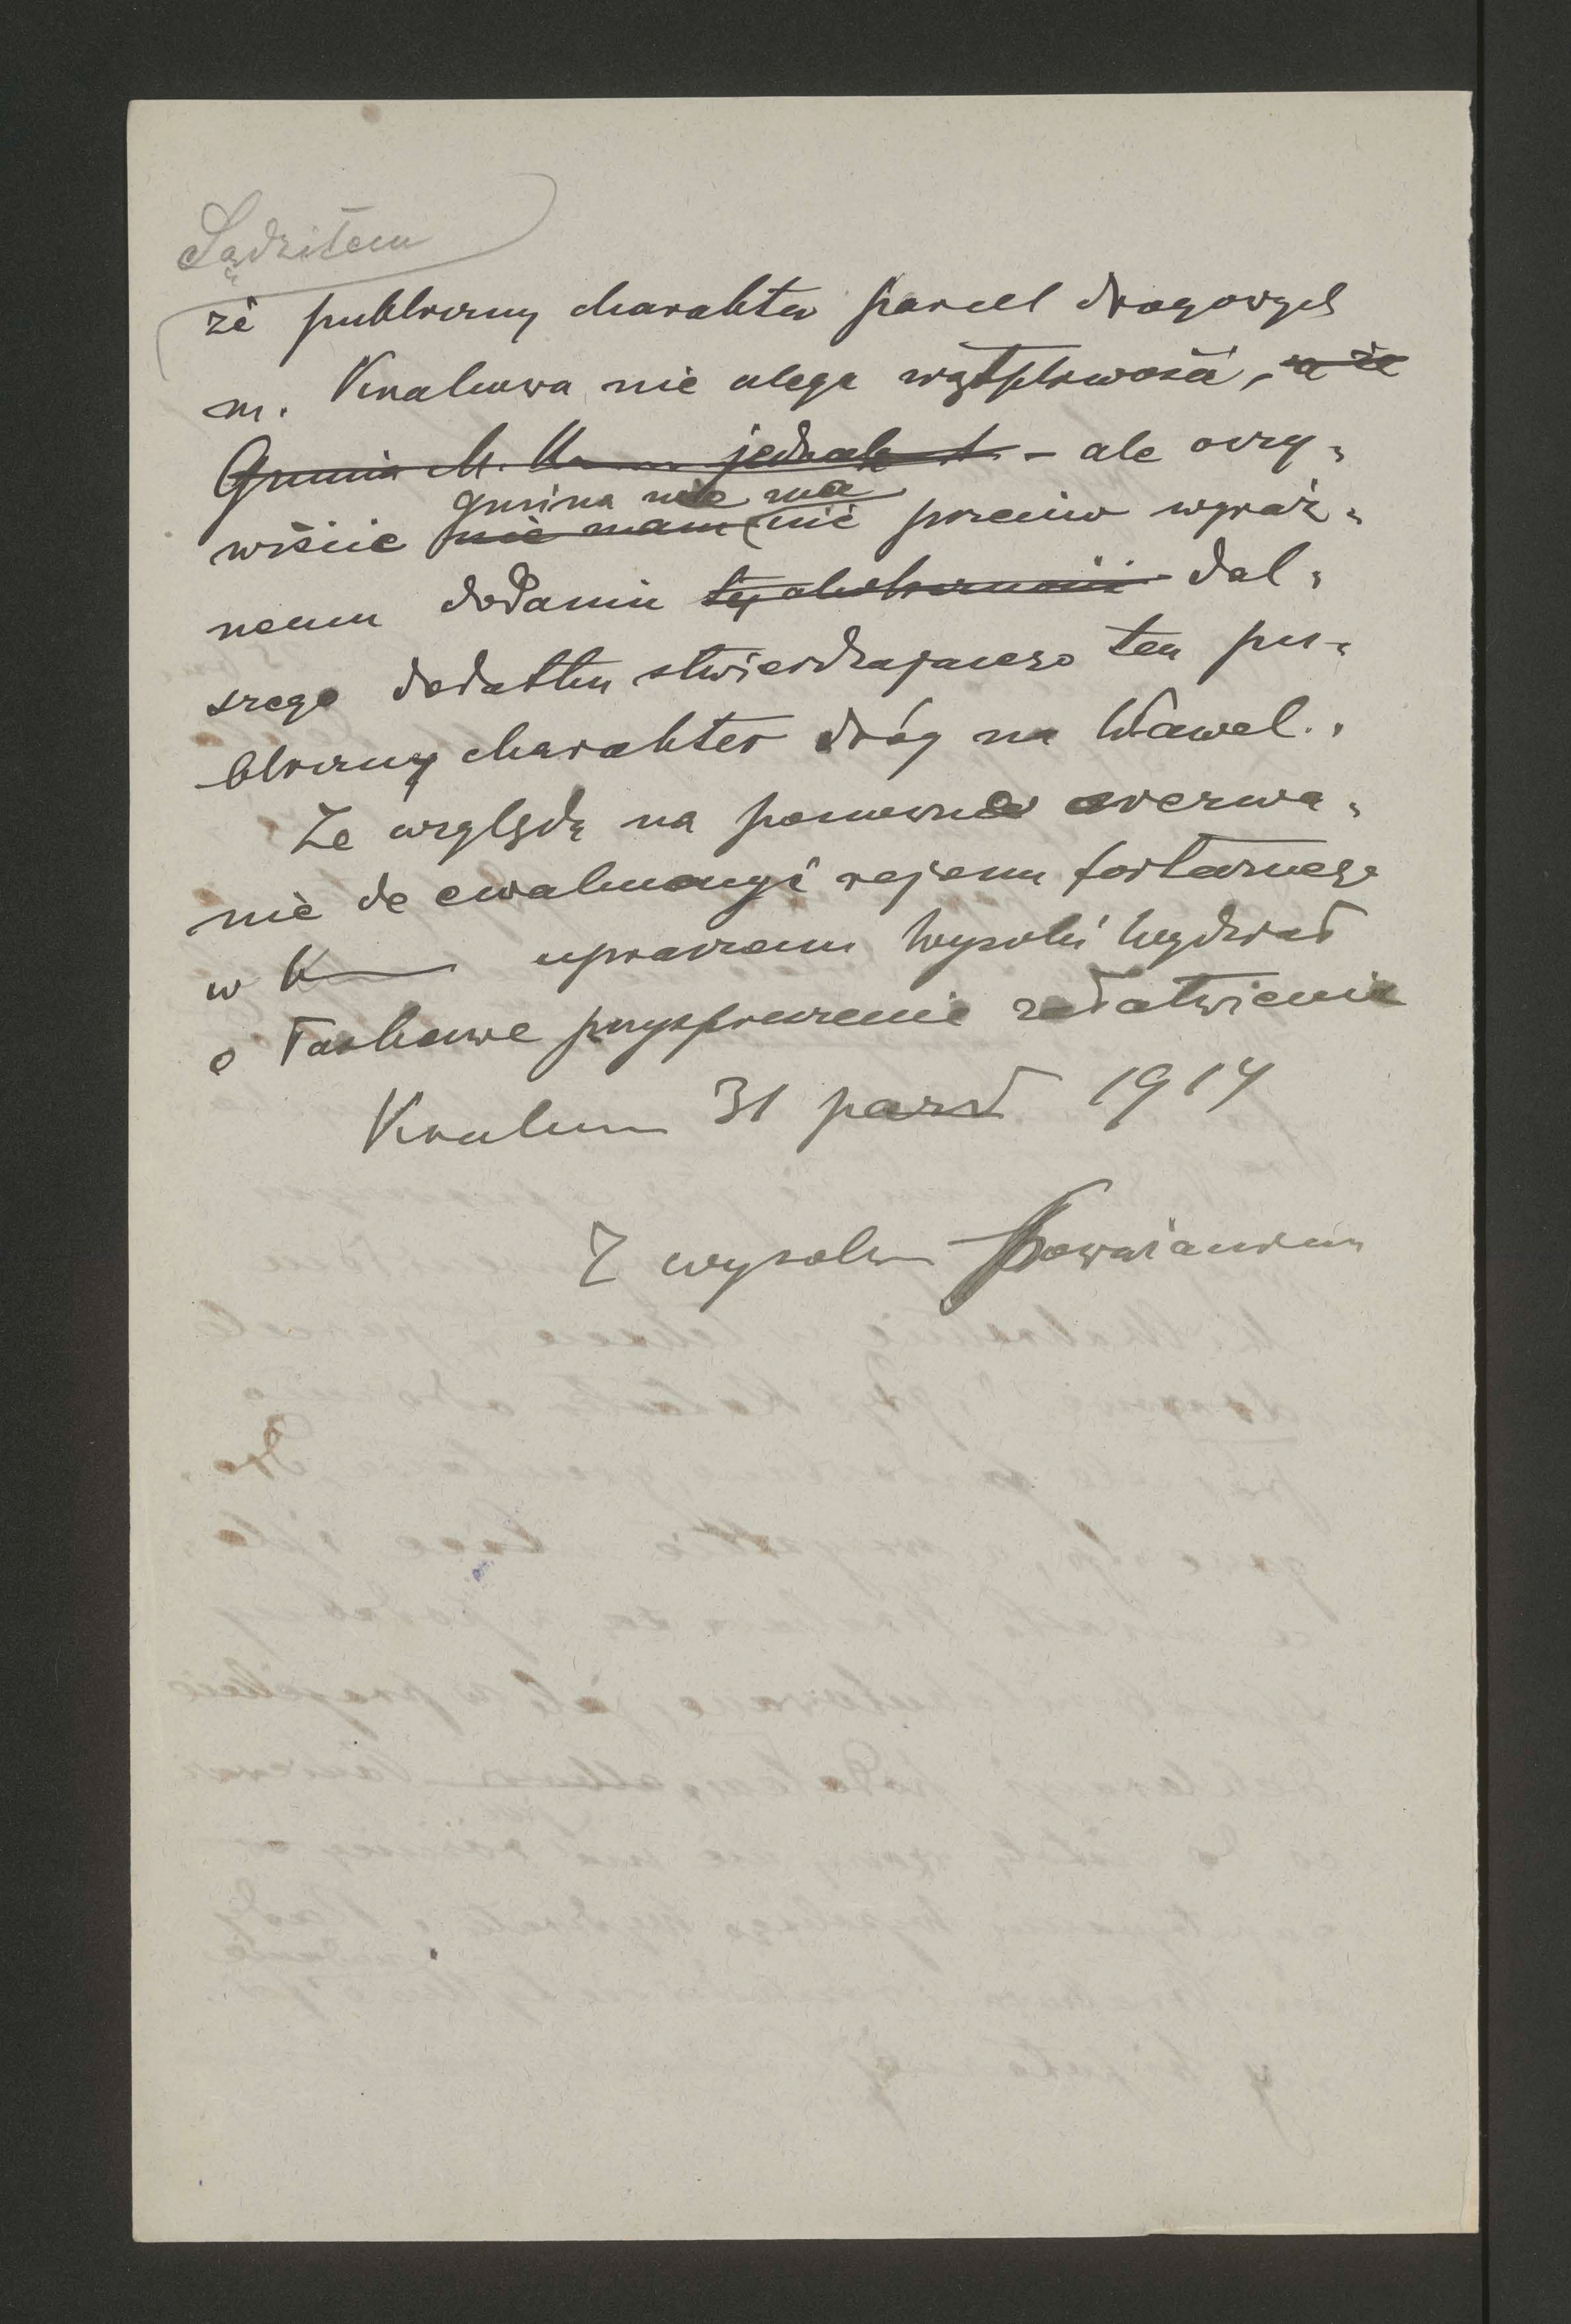 Sądziłem
że publiczny charakter parcel drogowych
m. Krakowa nie ulega wątpliwości, - a że
Gmina M. K jednak - ale oczy=
gmina nie ma
wiście nie mam nic przeciw wyraź=
nemu dodaniu tej okoliczności dal=
szego dodatku stwierdzającego ten pu=
bliczny charakter dróg na Wawel.
Ze względu na ponowne wezwa=
nie do ewakuacyi rejonu fortecznego
w K upraszam Wysoki Wydział
o łaskawe przyspieszenie załatwienia
Kraków 31 paźd 1914
Z wysokim poważaniem